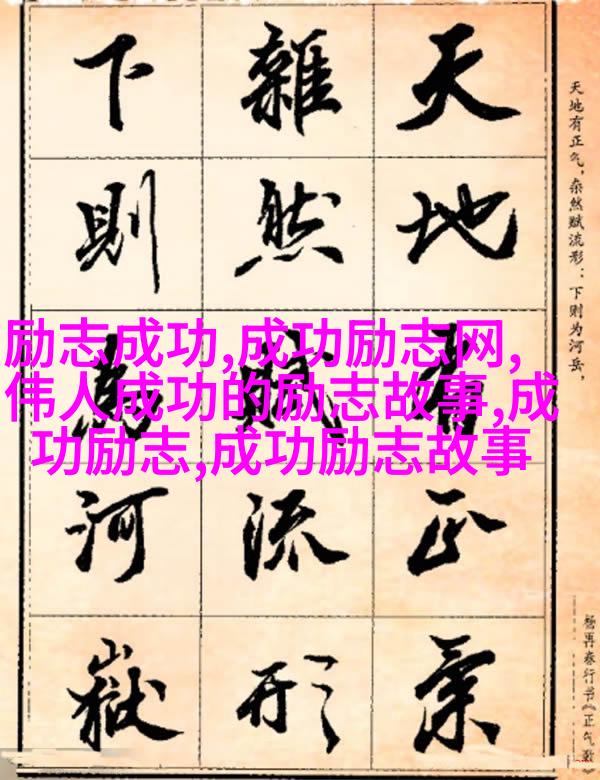 天地有正氣
雜然賦流形
下則為河嶽
天地有正气，杂然赋流形：下则为河岳，
杨再春行书《正气歌》
励志成功,成功励志网,
伟人成功的励志故事,成
功励志,成功励志故事